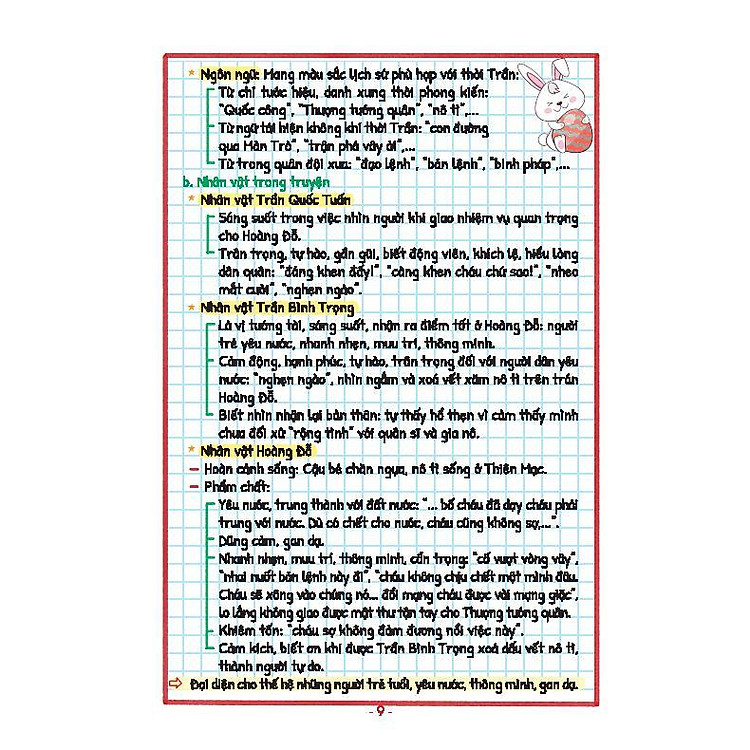 * Ngôn ngữ: Mang màu sắc lịch sử phù hợp với thời Trần:
Từ chỉ tước hiệu, danh xưng thời phong kiến:
"Quốc công", "Thượng tướng quân", "nô tì",...
Từ ngữ tái hiện không khí thời Trần: "con đường
qua Màn Trò", "trận phá vây ải",...
Từ trong quân đội xưa: "đạo lệnh", "bản lệnh", "binh pháp",...
b. Nhân vật trong truyện
* Nhân vật Trần Quốc Tuấn
Sáng suốt trong việc nhìn người khi giao nhiệm vụ quan trọng
cho Hoàng Đỗ.
Trân trọng, tự hào, gần gũi, biết động viên, khích lệ, hiểu lòng
dân quân: "đáng khen đấy!", "càng khen cháu chứ sao!", "nheo
mắt cười", "nghẹn ngào".
* Nhân vật Trần Bình Trọng
Là vị tướng tài, sáng suốt, nhận ra điểm tốt ở Hoàng Đỗ: người
trẻ yêu nước, nhanh nhẹn, mưu trí, thông minh.
Cảm động, hạnh phúc, tự hào, trân trọng đối với người dân yêu
nước: "nghẹn ngào", nhìn ngắm và xoá vết xăm nô tì trên trán
Hoàng Đỗ.
Biết nhìn nhận lại bản thân: tự thấy hổ thẹn vì cảm thấy mình
chưa đối xử "rộng tình" với quân sĩ và gia nô.
* Nhân vật Hoàng Đỗ
- Hoàn cảnh sống: Cậu bé chăn ngựa, nô tì sống ở Thiên Mạc.
- Phẩm chất:
Yêu nước, trung thành với đất nước: "... bố cháu đã dạy cháu phải
trung với nước. Dù có chết cho nước, cháu cũng không sợ,...".
Dũng cảm, gan dạ.
Nhanh nhẹn, mưu trí, thông minh, cẩn trọng: "cố vượt vòng vây",
"nhai nuốt bản lệnh này đi", "cháu không chịu chết một mình đâu.
Cháu sẽ xông vào chúng nó... đổi mạng cháu được vài mạng giặc",
lo lắng không giao được mật thư tận tay cho Thượng tướng quân.
Khiêm tốn: "cháu sợ không đảm đương nổi việc này".
Cảm kích, biết ơn khi được Trần Bình Trọng xoá dấu vết nô tì,
thành người tự do.
⇨ Đại diện cho thế hệ những người trẻ tuổi, yêu nước, thông minh, gan dạ.
- 9 -